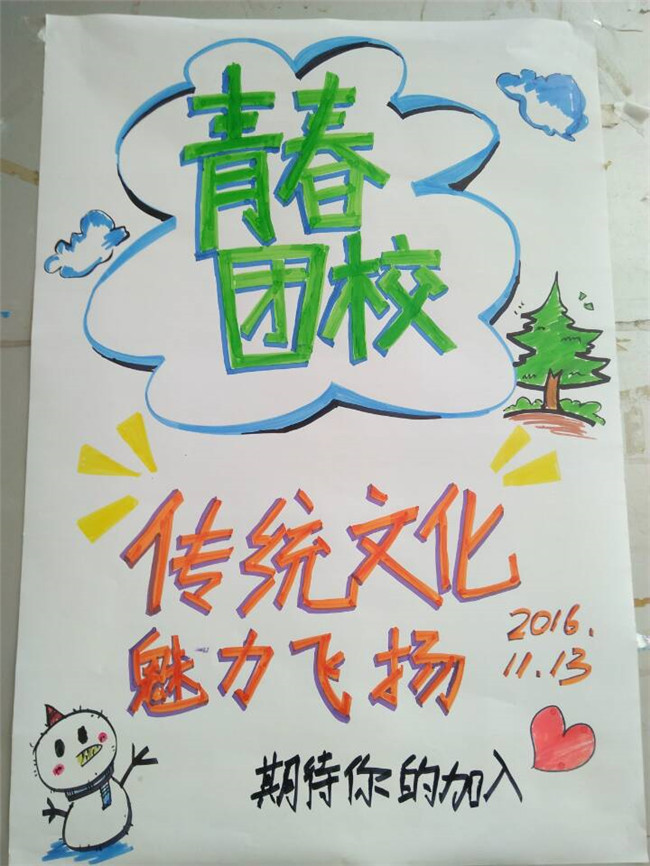 青春
团校
传统文化
魅力飞扬
2016.
11.13
期待你的加入